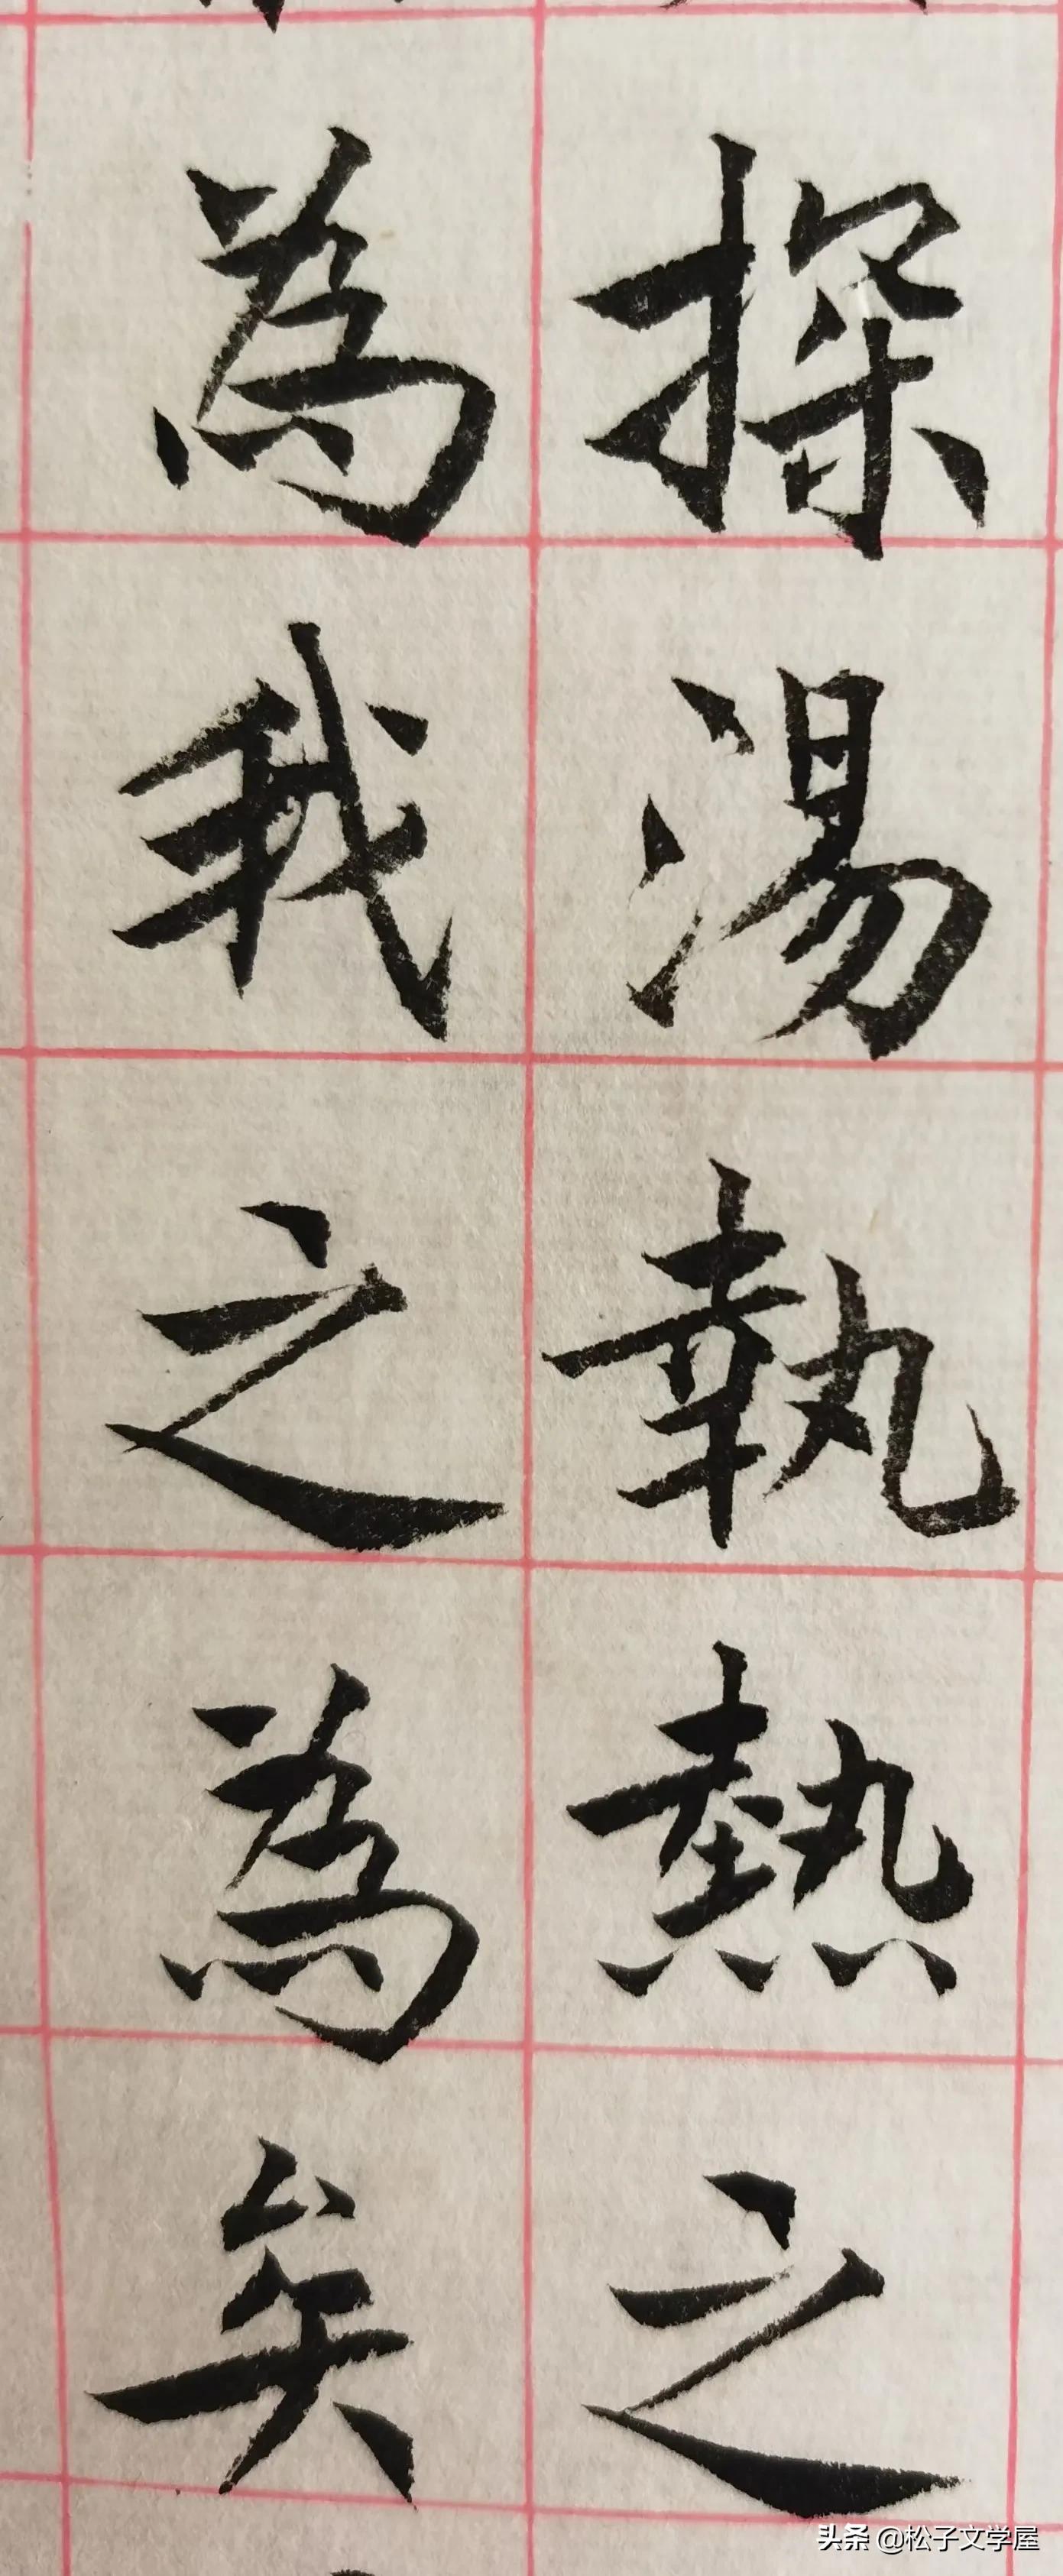 探湯執熱之
為我之為矣
头条 @松子文学屋